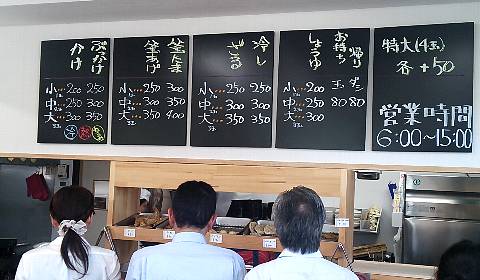 ぶっかけ
かけ
小…200 250
中…250 300
大…300 350
釜たま
釜あげ
小…250 300
中…300 350
大…350 400
冷し
ざる
小…250 250
中…300 300
大…350 350
お持ち帰り
しょうゆ
小…200
中…250
大…300
玉 80
ダシ 80
特大(4玉)
各 +50
営業時間
6:00~15:00